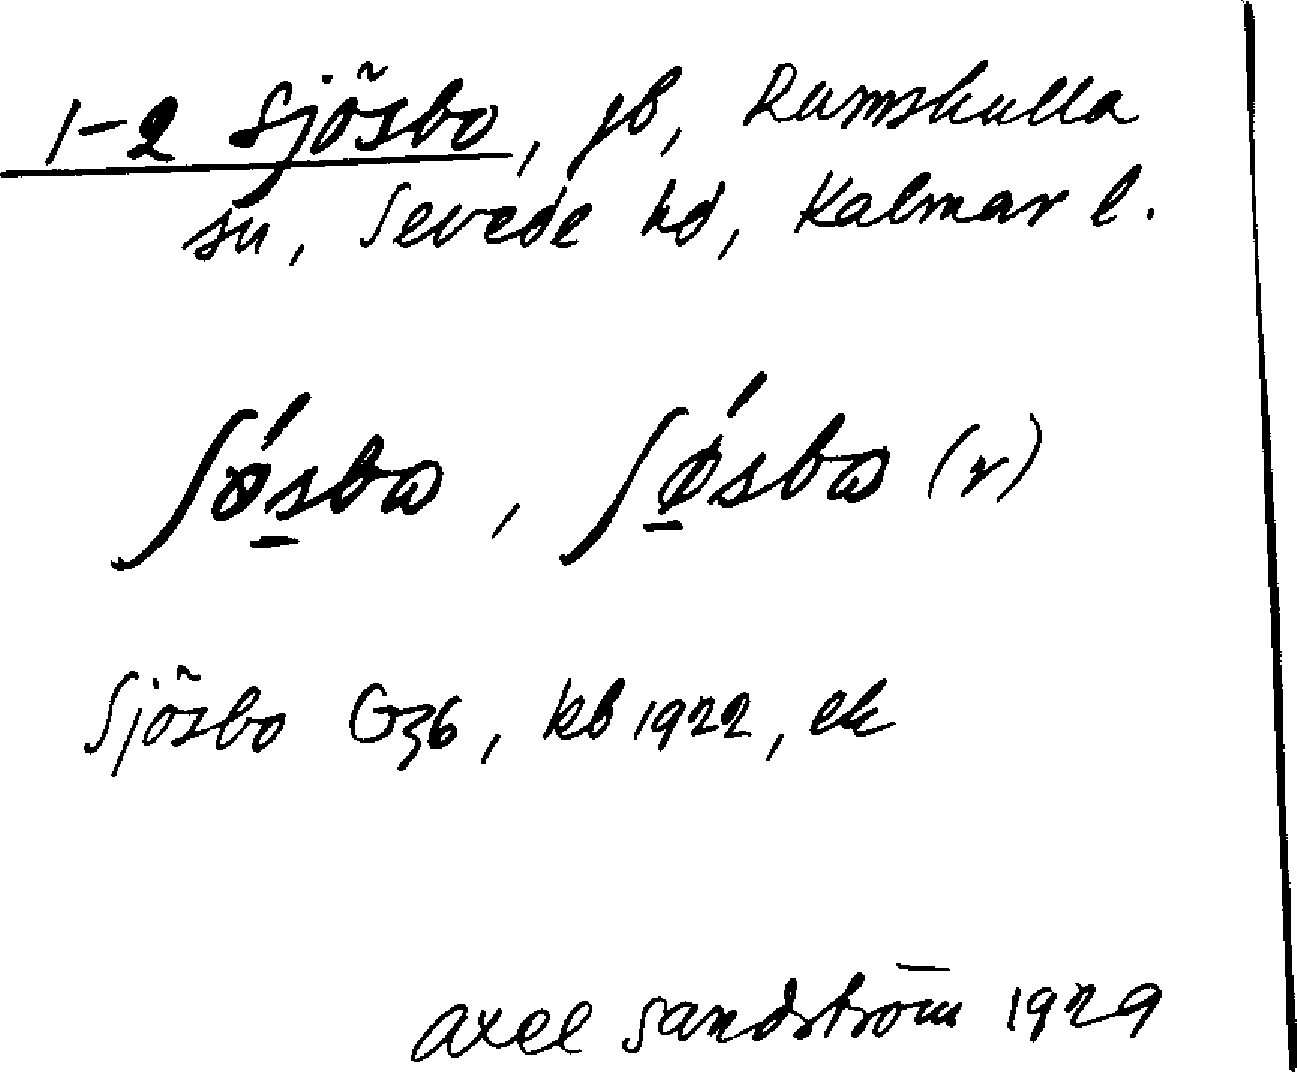 1-2 Sjösbo, jb, Rumskulla
sn, Sevede hd, Kalmar l.
ʃǿsbω, ʃǿsbω (r)
Sjösbo G36, kb 1922, ek
Axel Sandström 1929